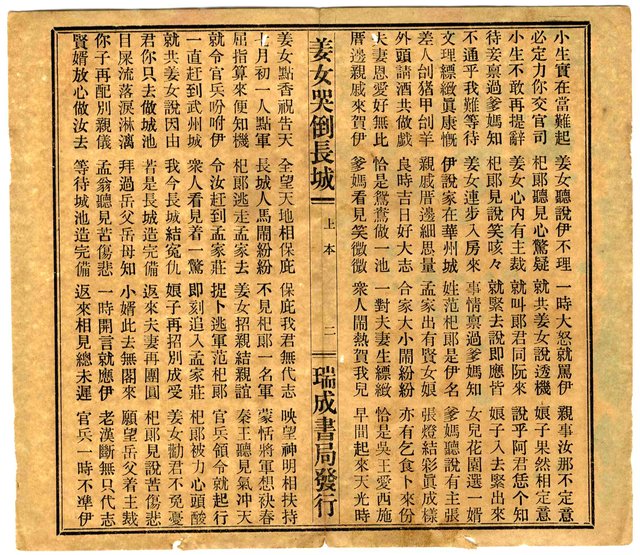 小生實在當難起 姜女聽說伊不理 一時大怒就罵伊 親事汝那不定意
必定力你交官司 杞郎聽見心驚疑 就共姜女說透機 娘子果然相定意
小生不敢再提辭 姜女心內有主裁 就叫郎君同阮來 說乎阿君恁个知
待妾禀過爹媽知 杞郎見說笑咳々 就緊去說即應皆 娘子入去緊出來
不通乎我難等待 姜女連步入房來 事情禀過爹媽知 女兒花園選一婿
文理縹緻眞康慨 伊說家在華州城 姓范杞郎是伊名 爹媽聽說有主張
差人刣猪甲刣羊 親戚厝邊細思量 孟家出有賢女娘 張燈結彩眞成樣
外頭請酒共做戲 良時吉日好大志 合家大小鬧紛紛 亦有乞食卜來份
夫妻恩愛好無比 恰是鴛鴦做一池 一對夫妻生縹緻 恰是吳王愛西施
厝邊親戚來賀伊 爹媽看見笑微微 衆人鬧熱賀我兒 早間起來天光時
姜女哭倒長城 上本 二 瑞成書局發行
姜女點香祝告天 全望天地相保庇 保庇我君無代志 映望神明相扶持
七月初一人點軍 長城人馬鬧紛紛 不見杞郎一名軍 蒙恬將軍想袂春
屈指算來便知機 杞郎逃走孟家去 姜女招親結親誼 秦王聽見氣冲天
就令官兵吩咐伊 令汝赶到孟家莊 捉卜逃軍范杞郎 官兵領令就起行
一直赶到武州城 衆人看見着一驚 即刻追入孟家莊 杞郎被力心頭酸
就共姜女說因由 我今長城結寃仇 娘子再招別成受 姜女勸君不免憂
君你只去做城池 若是長城造完備 返來夫妻再團圓 杞郎見說苦傷悲
目屎流落淚淋漓 拜過岳父岳母知 小婿此去無閣來 願望岳父着主裁
你子再配別親儀 孟翁聽見苦傷悲 一時開言就應伊 老漢斷無只代志
賢婿放心做汝去 等待城池造完備 返來相見總未遲 官兵一時不凖伊